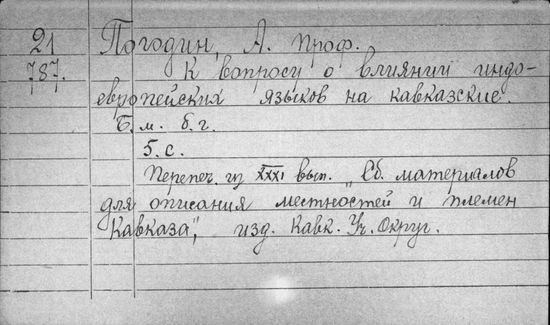 21 Погодин, А. проф.
787. К вопросу о влиянии индо-
европейских языков на кавказские.
Б. м. б. г.
5. с.
Перепеч. из XXXI вып. „Сб. материалов
для описания местностей и племен
Кавказа", изд. Кавк. Уч. Округ.